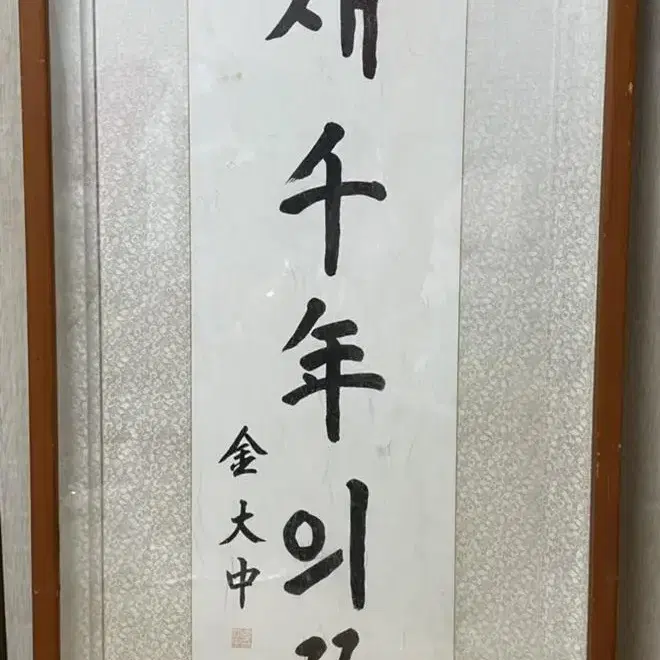 새千年의
金大中